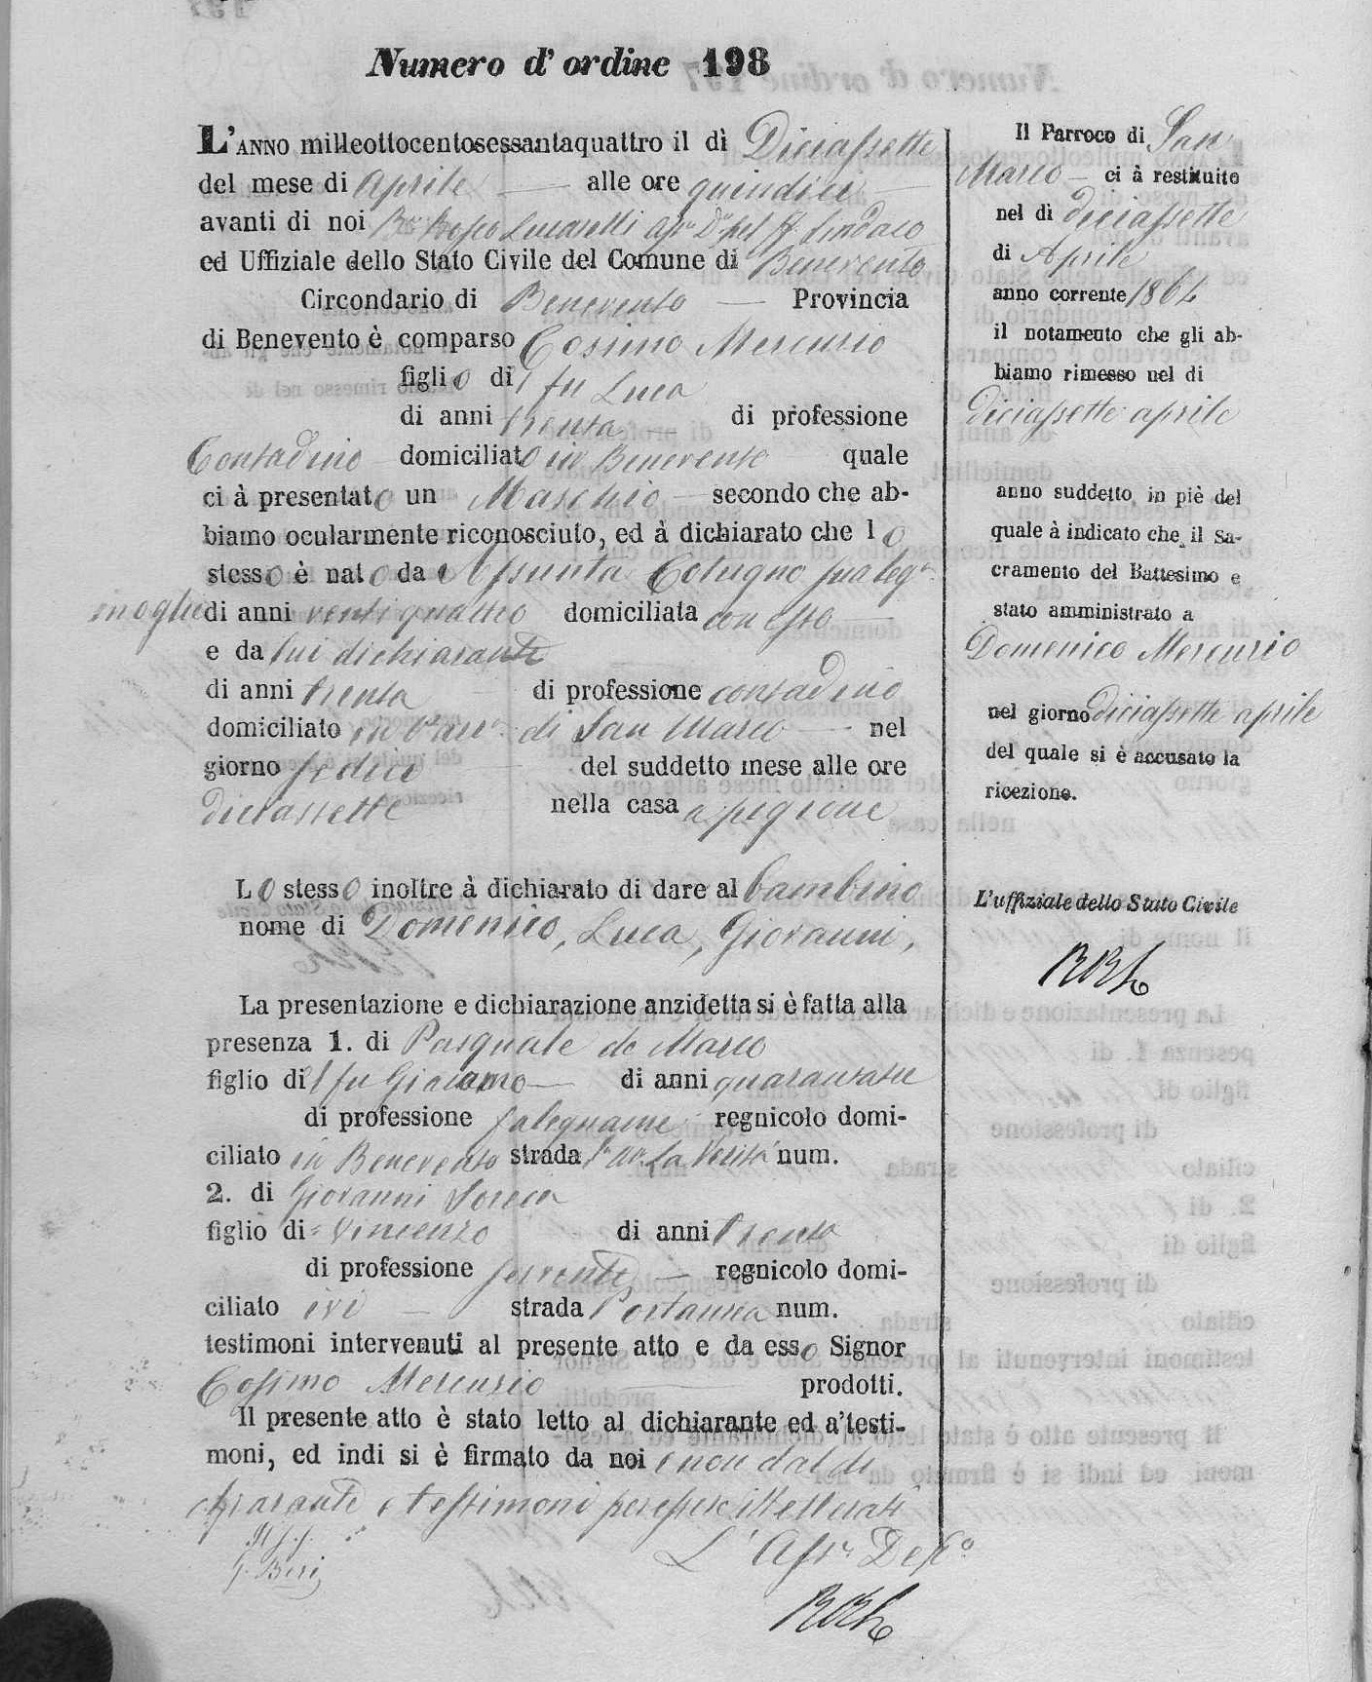 Numero d'ordine 198
L'ANNO milleottocentosessantaquattro il dì Diciassette
del mese di Aprile alle ore quindici
avanti di noi Lucarelli ff. Sindaco
ed Uffiziale dello Stato Civile del Comune di Benevento
Circondario di Benevento Provincia
di Benevento è comparso Cosimo Mercurio
figlio di fu Luca
di anni trenta di professione
Contadino domiciliato in Benevento quale
ci à presentato un Maschio secondo che ab-
biamo ocularmente riconosciuto, ed à dichiarato che lo
stesso è nato da Assunta Cotugno sua leg.
moglie di anni ventiquattro domiciliata con esso
e da lui dichiarante
di anni trenta di professione contadino
domiciliato in Parr. di San Marco nel
giorno sedici del suddetto mese alle ore
diciassette nella casa a pigione
Lo stesso inoltre à dichiarato di dare al bambino
nome di Domenico, Luca, Giovanni,
La presentazione e dichiarazione anzidetta si è fatta alla
presenza 1. di Pasquale de Marco
figlio di fu Giacomo di anni
di professione falegname regnicolo domi-
ciliato in Benevento strada La Verità num.
2. di Giovanni
figlio di Vincenzo di anni trenta
di professione servente regnicolo domi-
ciliato ivi strada num.
testimoni intervenuti al presente atto e da esso Signor
Cosimo Mercurio prodotti.
Il presente atto è stato letto al dichiarante ed a'testi-
moni, ed indi si è firmato da noi e non dal di
chiarante e testimoni per essere illetterati
L'Ass.re Del.o
Il Parroco di San
Marco ci à restituito
nel dì diciassette
di Aprile
anno corrente 1864
il notamento che gli ab-
biamo rimesso nel di
diciassette aprile
anno suddetto in piè del
quale à indicato che il Sa-
cramento del Battesimo e
stato amministrato a
Domenico Mercurio
nel giorno diciassette aprile
del quale si è accusato la
ricezione.
L'uffiziale dello Stato Civile